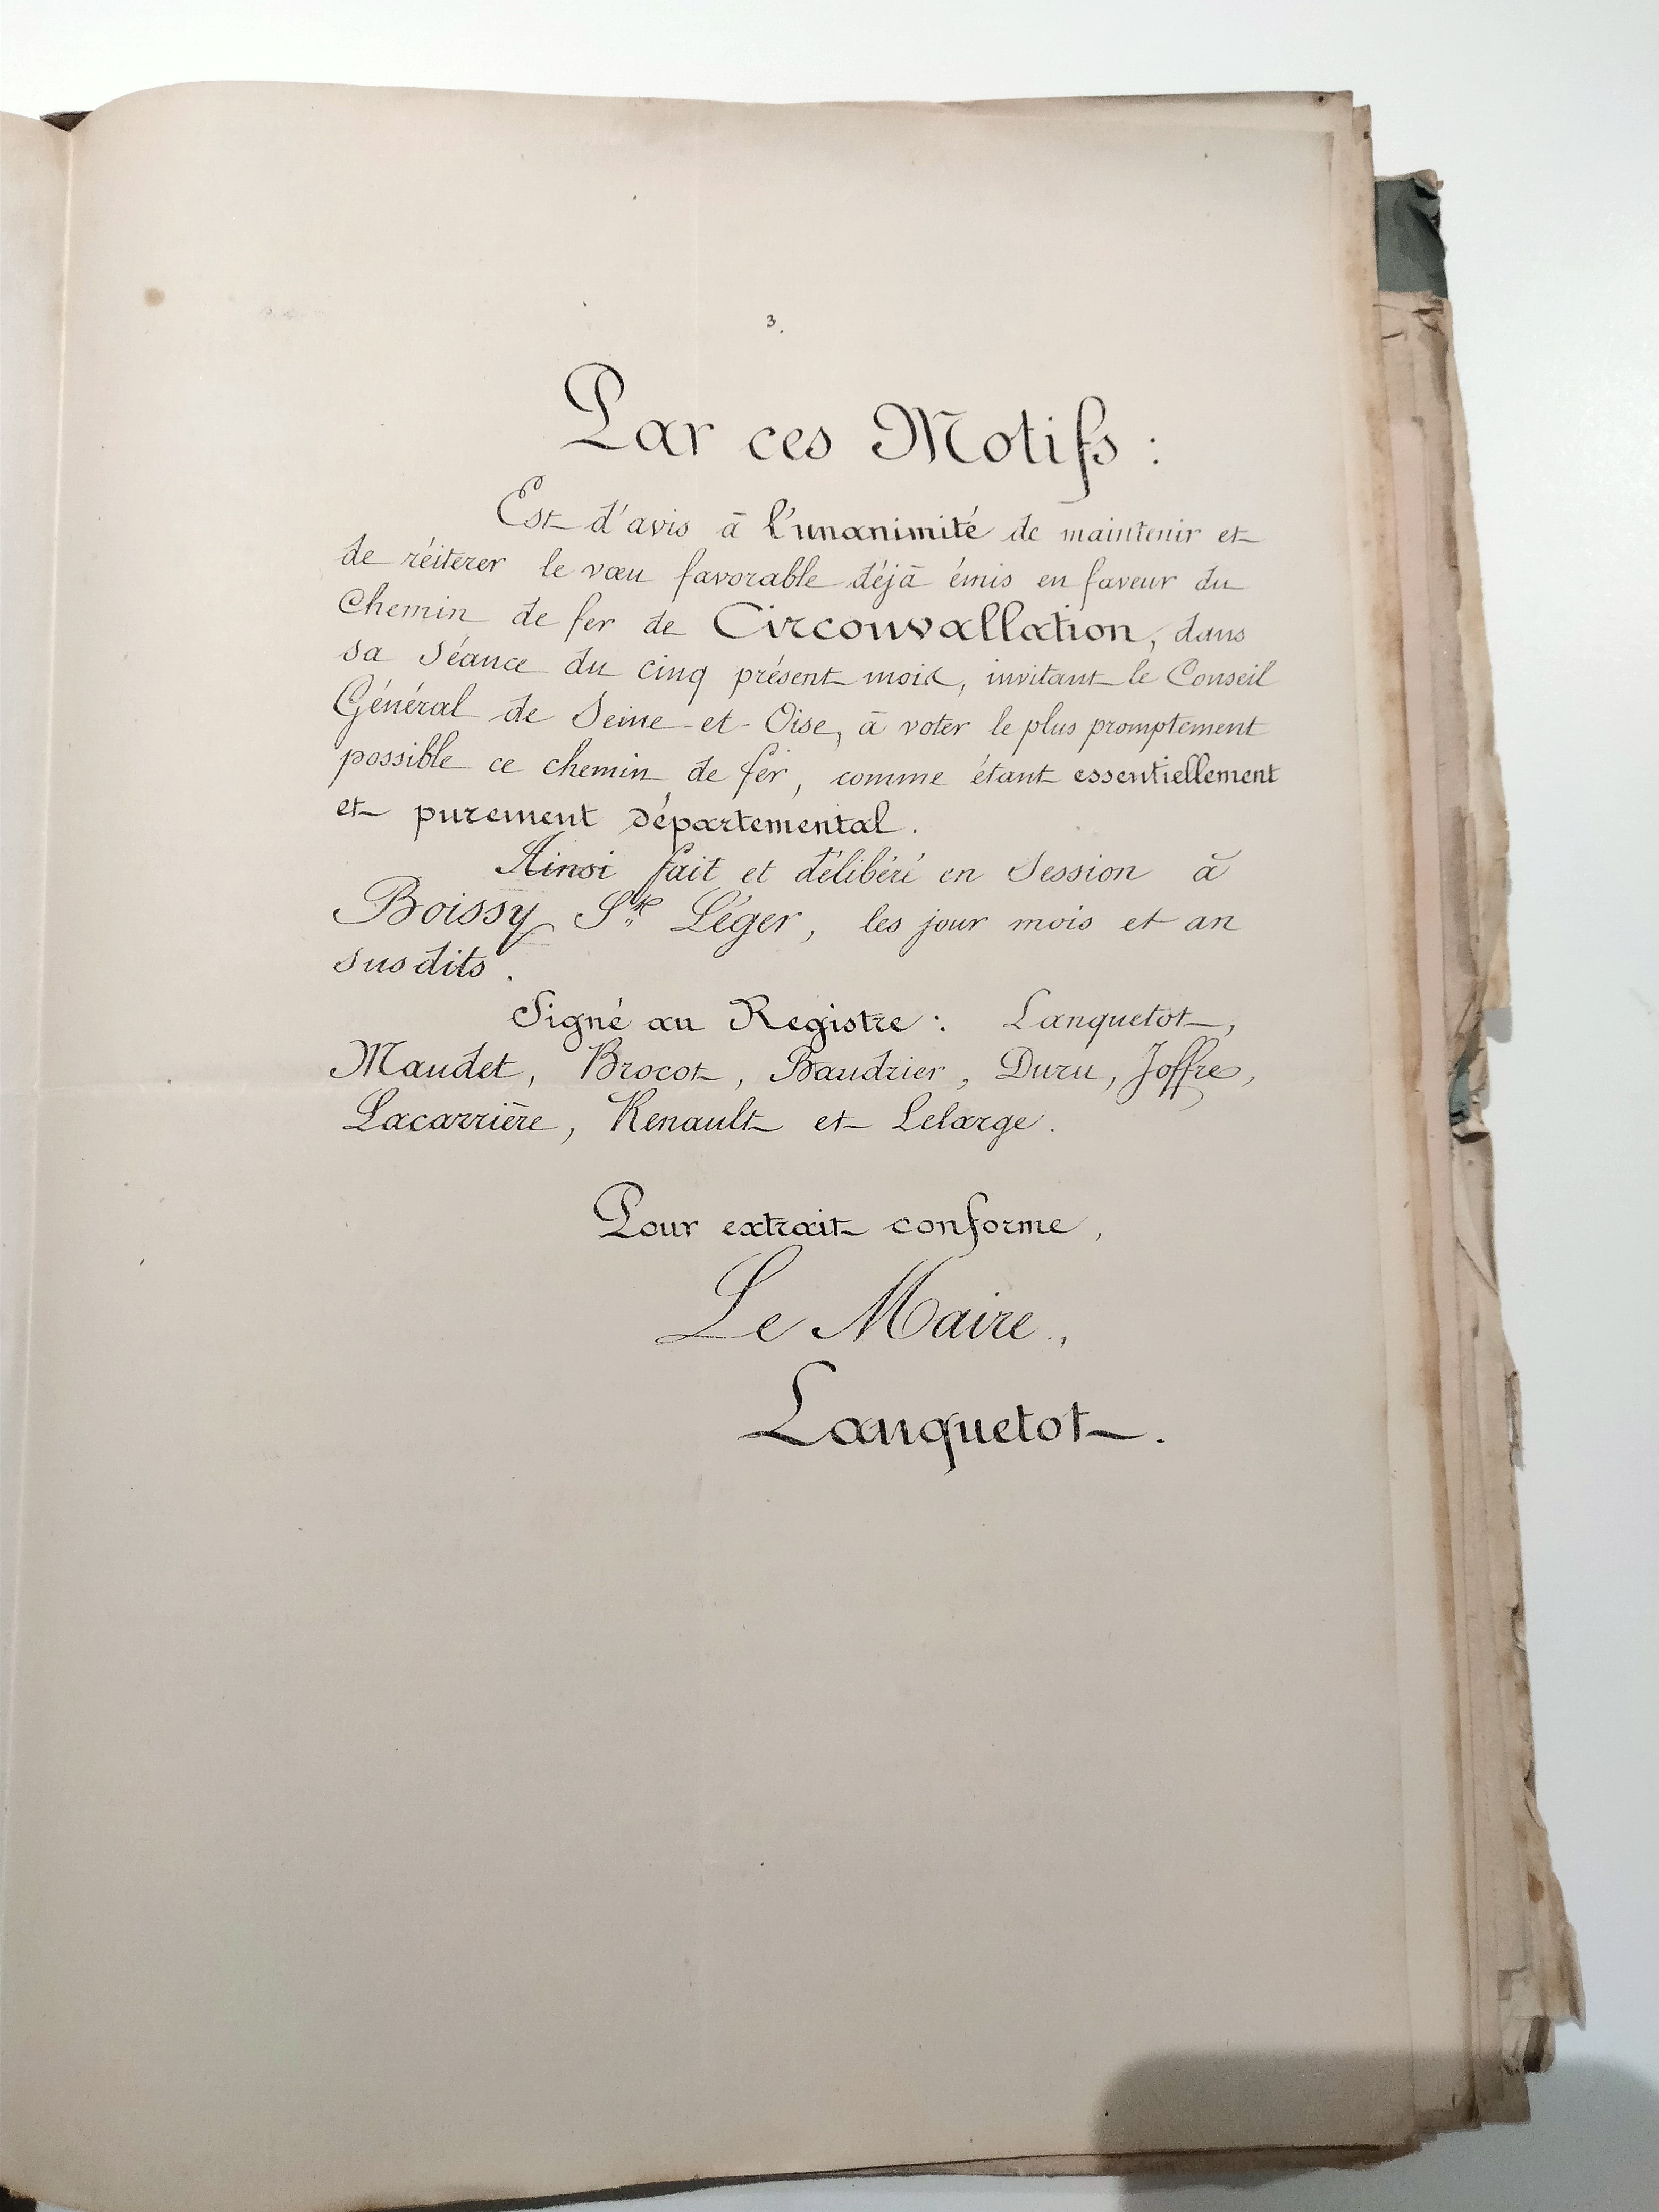 3.
Par ces Motifs :
Est d'avis à l'unanimité de maintenir et
de réiterer le vœu favorable déjà émis en faveur du
Chemin de fer de Circonvallation, dans
sa Séance du cinq présent mois, invitant le Conseil
Général de Seine-et-Oise, à voter le plus promptement
possible ce chemin de fer, comme étant essentiellement
et purement départemental.
Ainsi fait et délibéré en Session à
Boissy St Léger, les jour mois et an
susdits.
Signé au Registre : Lanquetot,
Maudet, Brocot, Baudrier, Duru, Joffre,
Lacarrière, Renault et Lelarge.
Pour extrait conforme,
Le Maire,
Lanquetot.